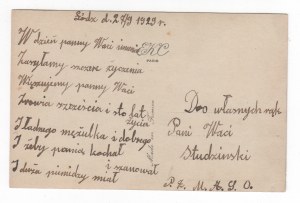 Łódź d. 27/9 1929 r.
W dzień panny Waci imienin
Zasyłamy szczere życzenia
Winszujemy panny Waci
Zdrowia szczęścia i sto lat
życia
I ładnego mężulka i dobrego
I żeby panią kochał
i szanował
I dużo pieniędzy miał
Do własnych rąk
Pani Waci
Studzinski
P. Z. M. A. S. O.